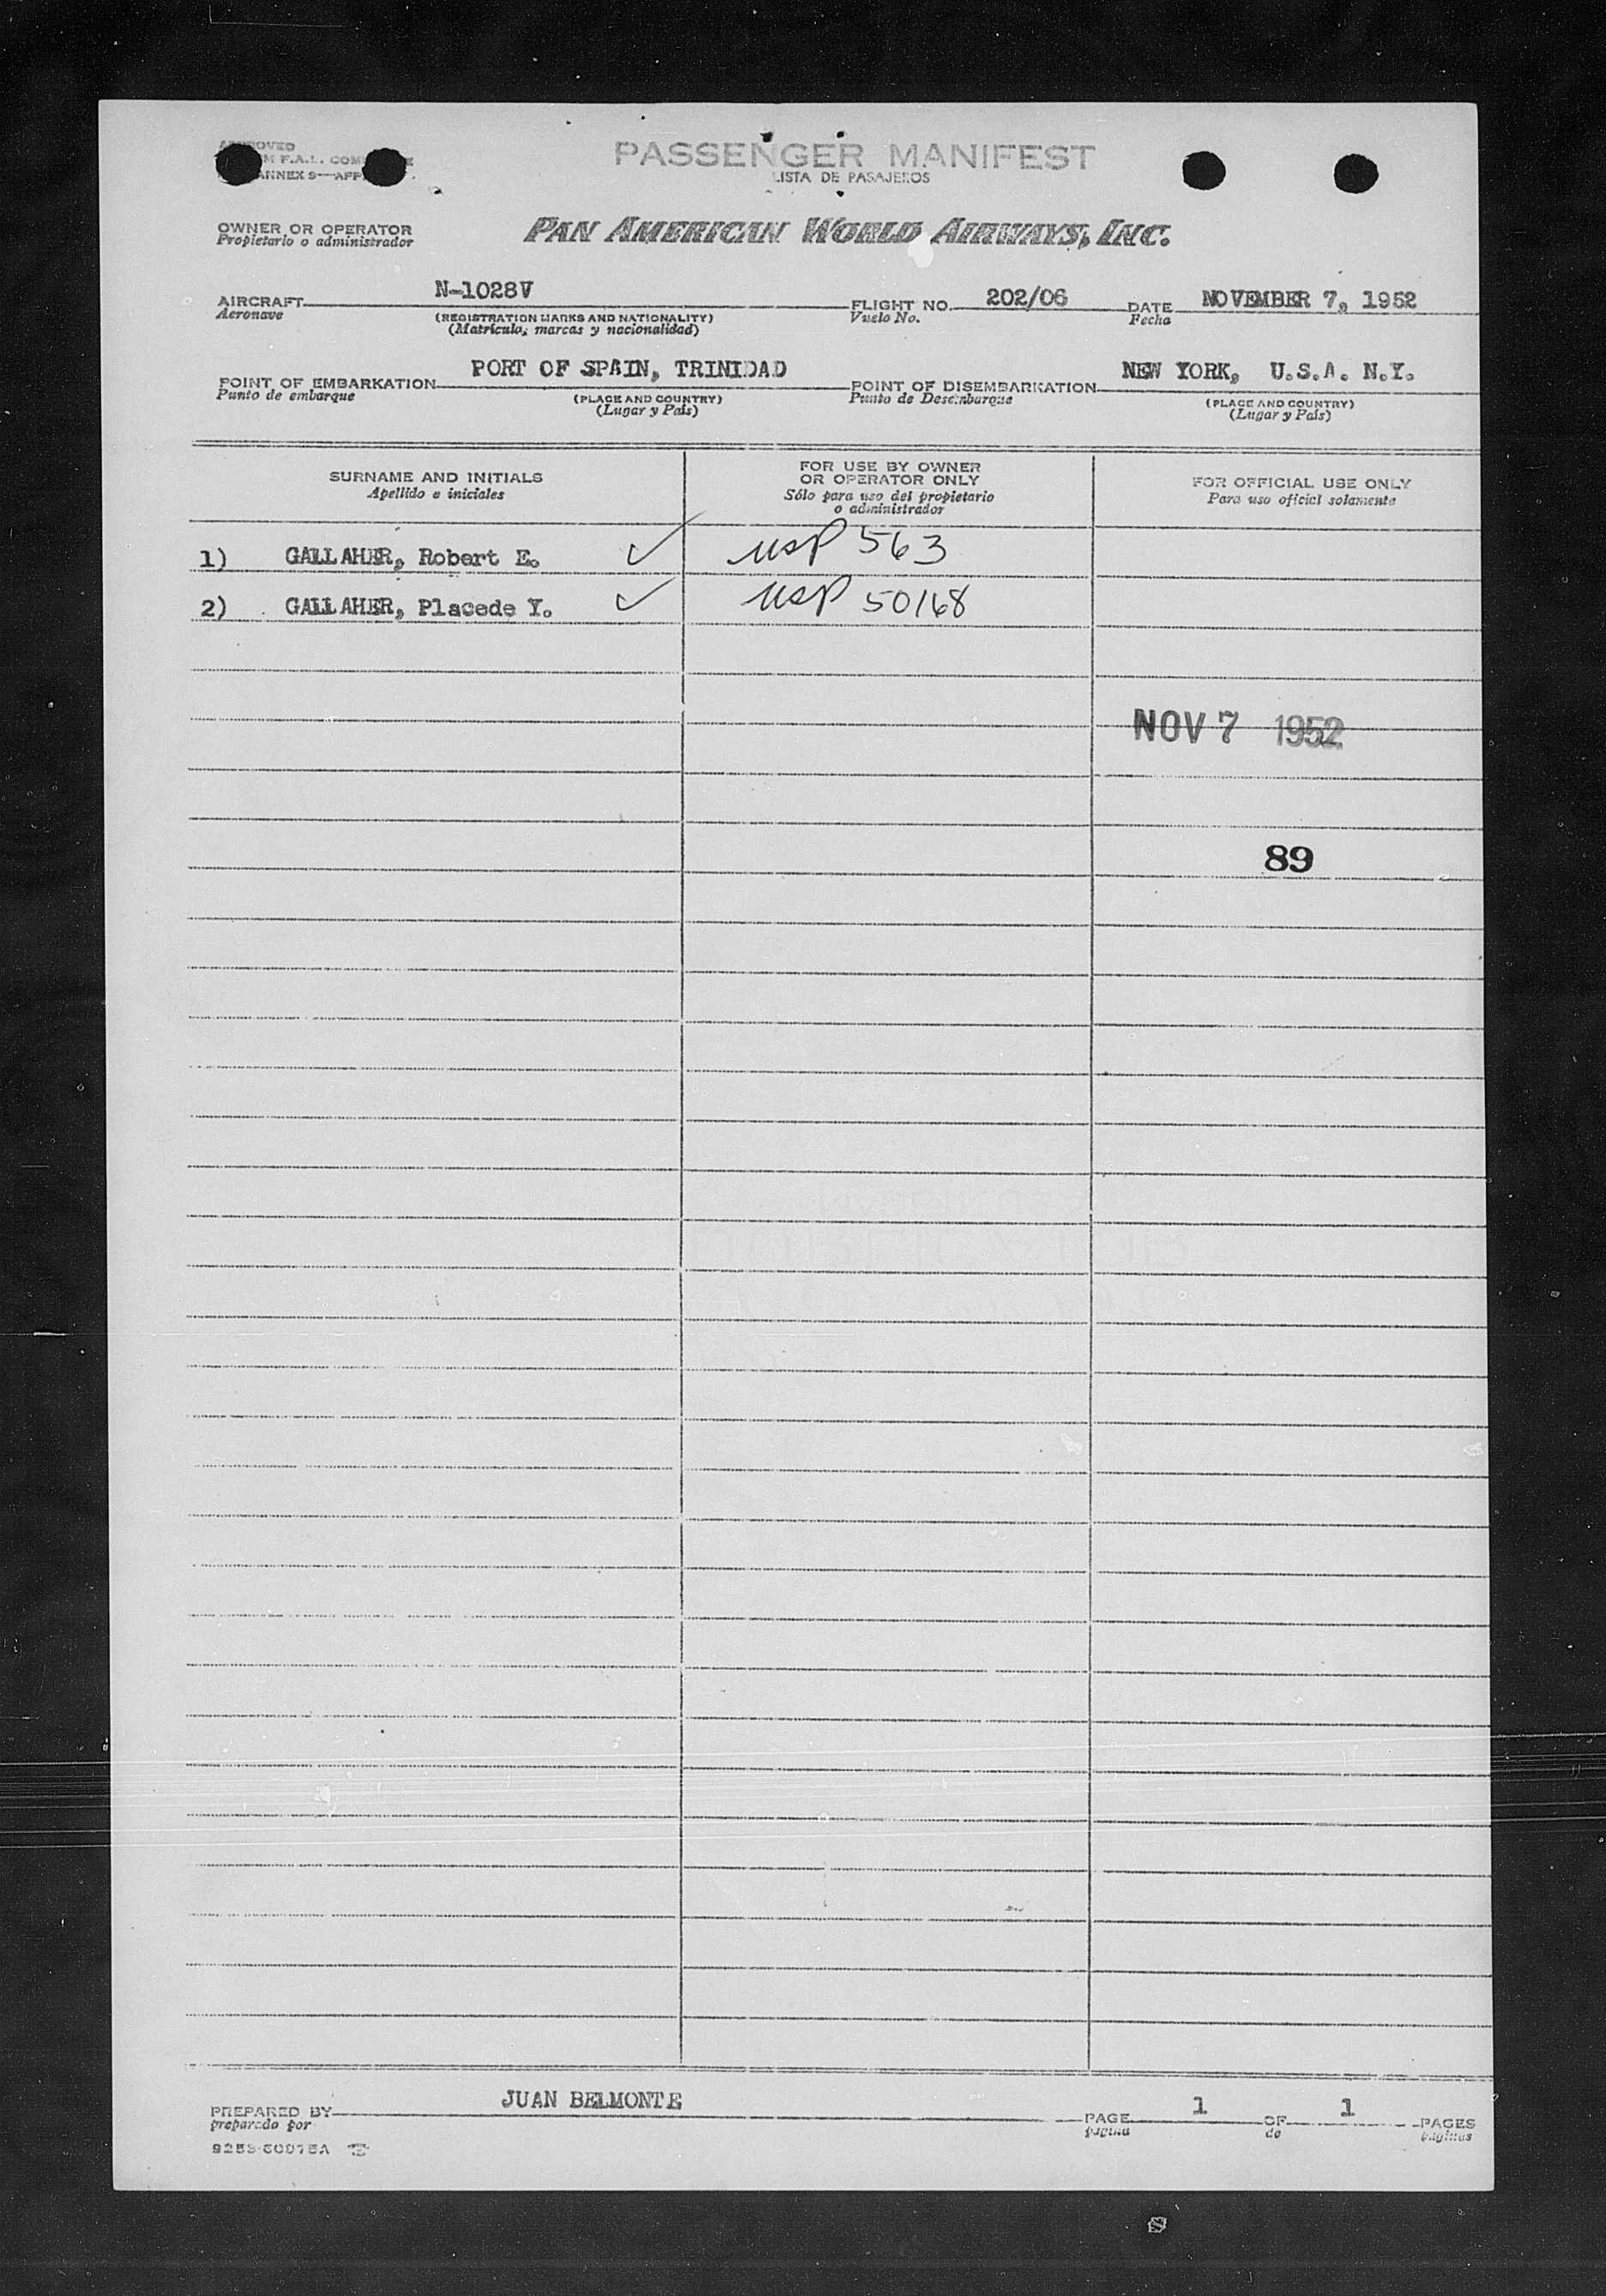 PASSENGER MANIFEST
LISTA DE PASAJEROS
F.A.L.
ANNEX 9—APP
OWNER OR OPERATOR
Propietario o administrador
PAN AMERICAN WORLD AIRWAYS, INC.
AIRCRAFT N-1028V FLIGHT NO. 202/06 DATE NOVEMBER 7, 1952
Aeronave (REGISTRATION MARKS AND NATIONALITY) Vuelo No. Fecha
(Matrícula, marcas y nacionalidad)
POINT OF EMBARKATION PORT OF SPAIN, TRINIDAD POINT OF DISEMBARKATION NEW YORK, U.S.A. N.Y.
Punto de embarque (PLACE AND COUNTRY) Punto de Desembarque (PLACE AND COUNTRY)
(Lugar y País) (Lugar y País)
SURNAME AND INITIALS
Apellido e iniciales
FOR USE BY OWNER
OR OPERATOR ONLY
Sólo para uso del propietario
o administrador
FOR OFFICIAL USE ONLY
Para uso oficial solamente
1) GALLAHER, Robert E. ✓ USP 563
2) GALLAHER, Placede Y. ✓ USP 50168
NOV 7 1952
89
PREPARED BY JUAN BELMONTE PAGE 1 OF 1 PAGES
preparado por página de páginas